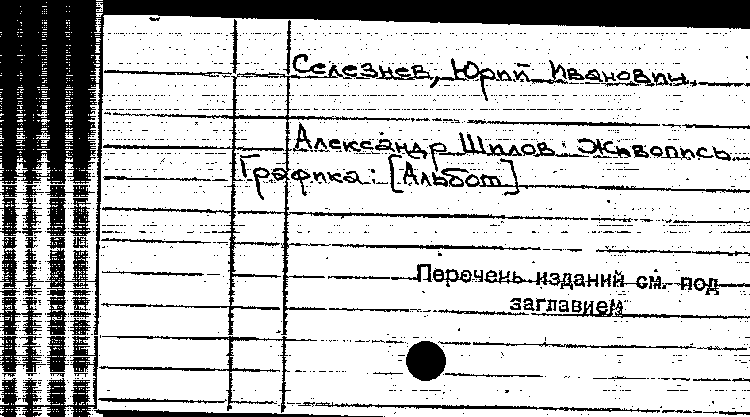 Селезнев, Юрий Иванович.
Александр Шилов: Живопись.
Графика: [Альбом]
Перечень изданий см. под
заглавием